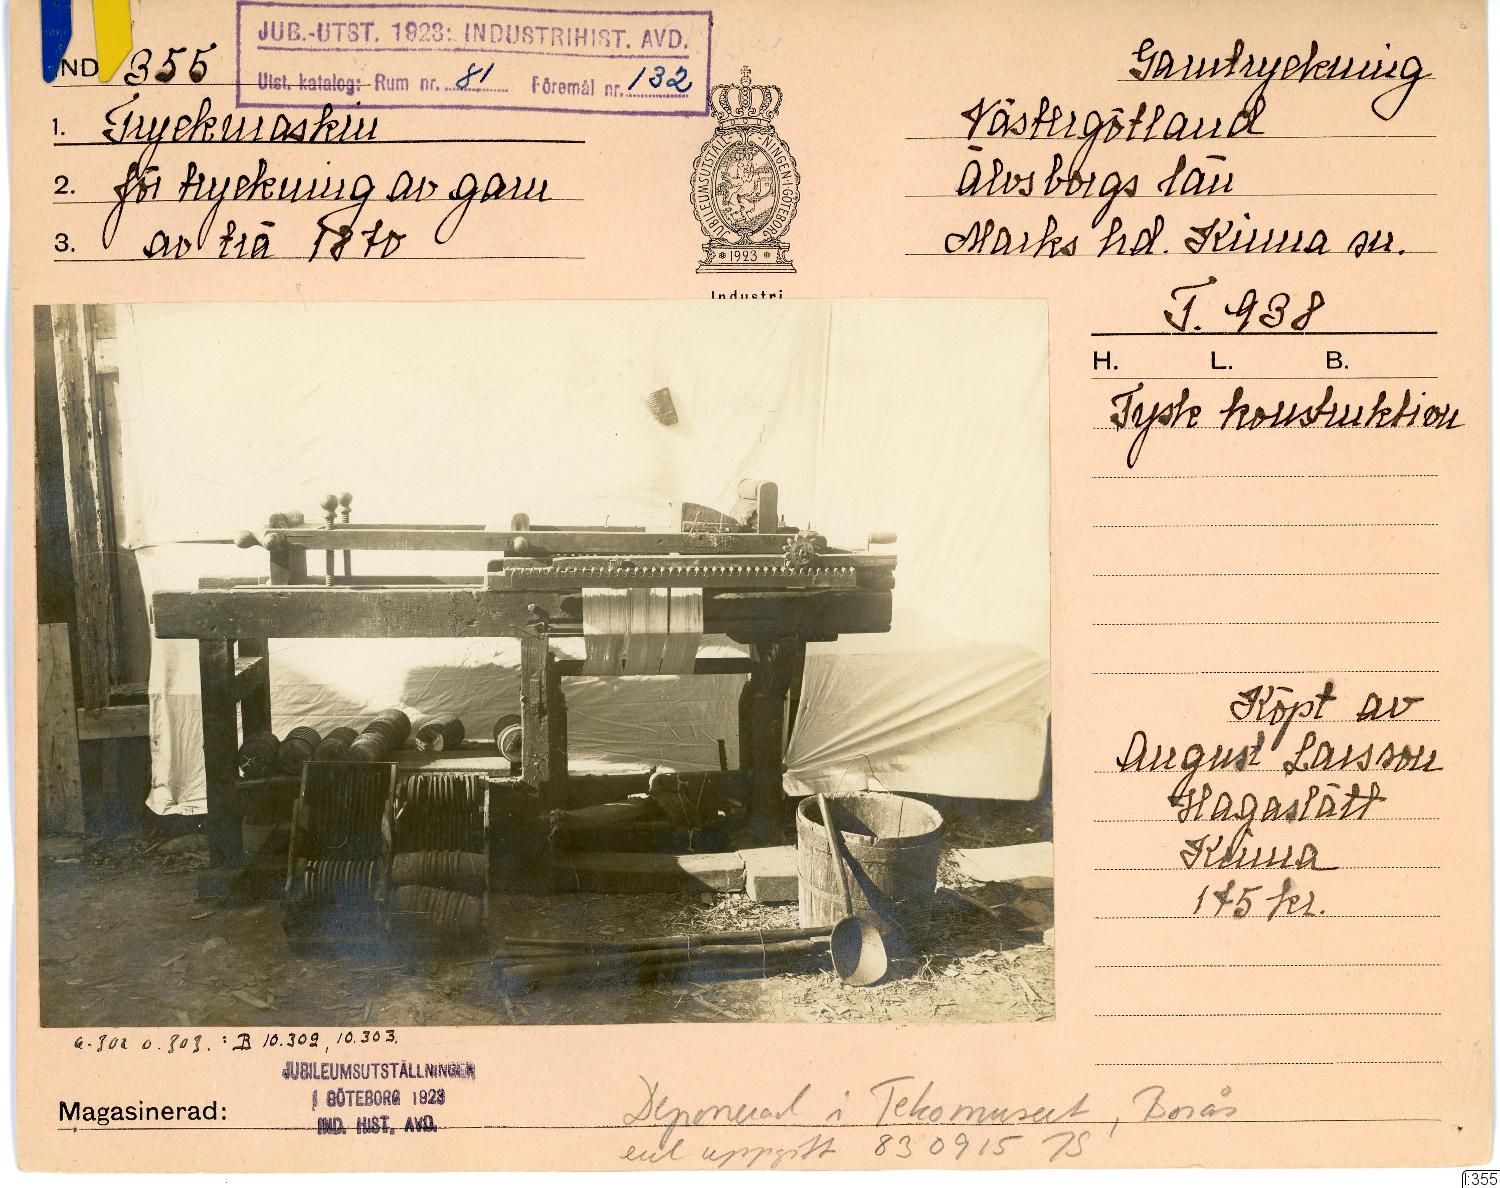 JUB.-UTST. 1923: INDUSTRIHIST. AVD.
Utst. katalog: Rum nr. 81 Föremål nr. 132
IND 355
1. Tryckmaskin
2. för tryckning av garn
3. av trä 1870
JUBILEUMSUTSTÄLLNINGEN I GÖTEBORG
1923
Industri
Garntryckning
Västergötland
Älvsborgs län
Marks hd. Kinna sn.
T. 938
H. L. B.
Tysk konstruktion
Köpt av
August Larsson
Hagaslätt
Kinna
175 kr.
B 10.302, 10.303.
JUBILEUMSUTSTÄLLNINGEN
I GÖTEBORG 1923
IND. HIST. AVD.
Magasinerad:
Deponerad i Tekomuseet, Borås
enl uppgift 830915
I:355